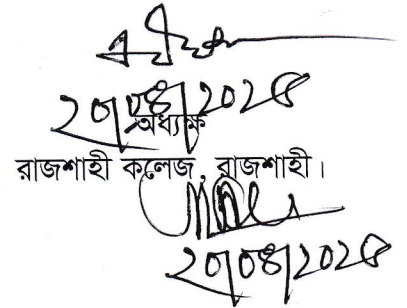 ২০/০৪/২০২৫
অধ্যক্ষ
রাজশাহী কলেজ, রাজশাহী।
২০/০৪/২০২৫